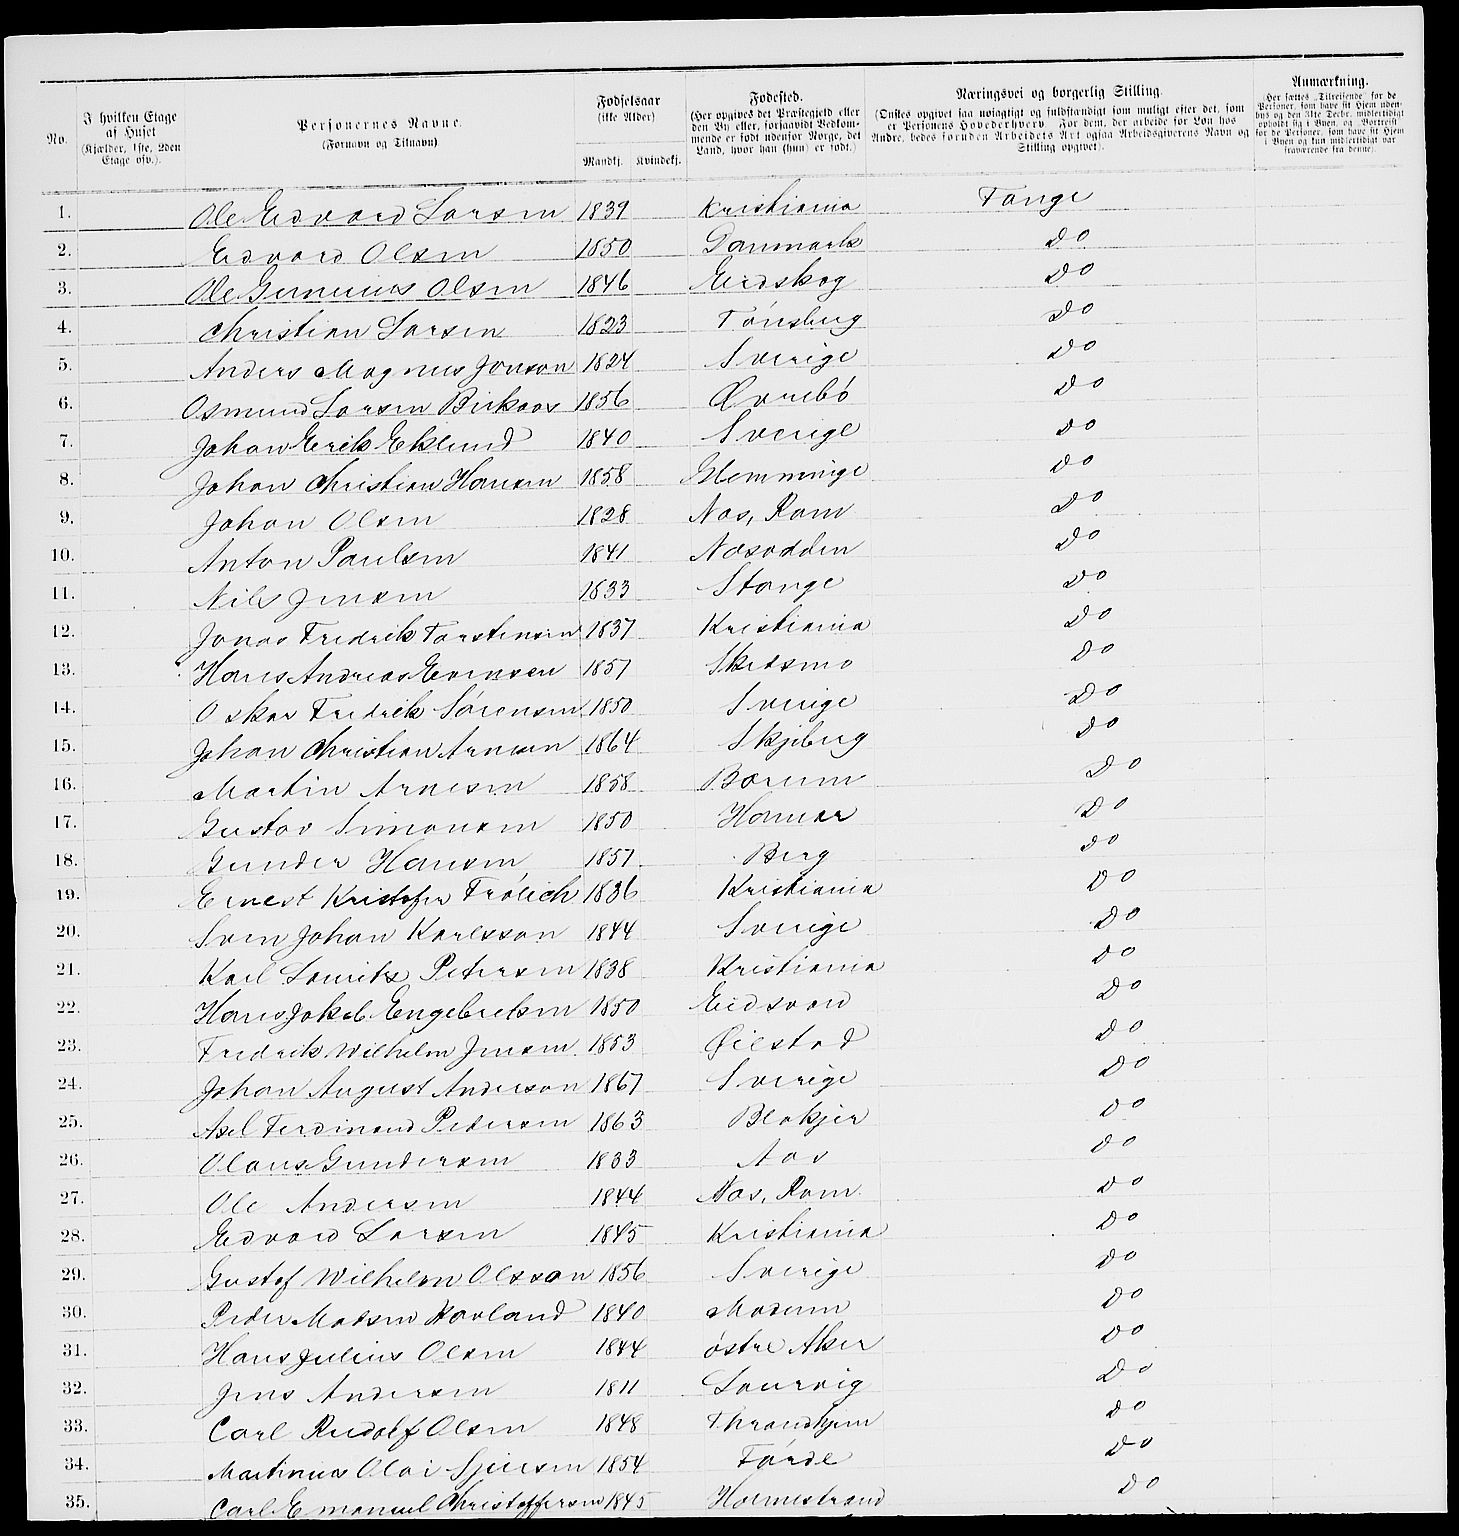 No.
I hvilken Etage af Huset (Kjælder, 1ste, 2den Etage osv.).
Personernes Navne. (Fornavn og Tilnavn)
Fødselsaar (ikke Alder)
Mandkj. Kvindekj.
Fødested. (Her opgives det Præstegjeld eller den By eller, forsaavidt Vedkommende er født udenfor Norge, det Land, hvor han (hun) er født.)
Næringsvei og borgerlig Stilling. (Ønskes opgivet saa nøiagtigt og fuldstændigt som muligt efter det, som er Personens Hovederhverv. For dem, der arbeide for Løn hos Andre, bedes foruden Arbeidets Art ogsaa Arbeidsgiverens Navn og Stilling opgivet).
Anmærkning. (Her sættes „Tilreisende" for de Personer, som have sit Hjem udenbys og den 31te Decbr. midlertidigt opholdt sig i Byen, og „Bortreist" for de Personer, som have sit Hjem i Byen og kun midlertidigt var fraværende fra denne).
1. Ole Edvard Larsen 1839 Kristiania Fange
2. Edvard Olsen 1850 Danmark Do
3. Ole Olsen 1846 Eidskog Do
4. Christian Larsen 1823 Tønsberg Do
5. Anders Magnus Jonson 1824 Sverige Do
6. Osmund Larsen Birkaas 1856 Øvrebö Do
7. Johan Erik Eklund 1840 Sverige Do
8. Johan Christian Hansen 1858 Glemminge Do
9. Johan Olsen 1828 Nas, Rom Do
10. Anton Paulsen 1841 Nasodden Do
11. Nils Jensen 1833 Stange Do
12. Jonas Fredrik Torstensen 1837 Kristiania Do
13. Hans Andreas Evensen 1857 Skedsmo Do
14. Oskar Fredrik Sörensen 1850 Sverige Do
15. Johan Christian Arnesen 1864 Skjeberg Do
16. Martin Arnesen 1858 Bærum Do
17. Gustav Simonsen 1850 Hamar Do
18. Gunder Hansen 1857 Berg Do
19. Ernest Kristofer Frölich 1836 Kristiania Do
20. Sven Johan Karlsson 1844 Sverige Do
21. Karl Laurits Petersen 1838 Kristiania Do
22. Hans Jakob Engebretsen 1850 Eidsvold Do
23. Fredrik Wilhelm Jensen 1853 Øiestad Do
24. Johan August Anderson 1867 Sverige Do
25. Axel Ferdinand Pedersen 1863 Blakjer Do
26. Olaus Gundersen 1833 Aas Do
27. Ole Andersen 1844 Nas, Rom. Do
28. Edvard Larsen 1845 Kristiania Do
29. Gustaf Wilhelm Olsson 1856 Sverige Do
30. Peder Madsen Kavland 1840 Modum Do
31. Hans Julius Olsen 1844 østre Aker Do
32. Jens Andersen 1811 Laurvig Do
33. Carl Rudolf Olsen 1848 Throndhjem Do
34. Martinius Olai 1854 Førde Do
35. Carl Emanuel Christoffersen 1845 Holmestrand Do